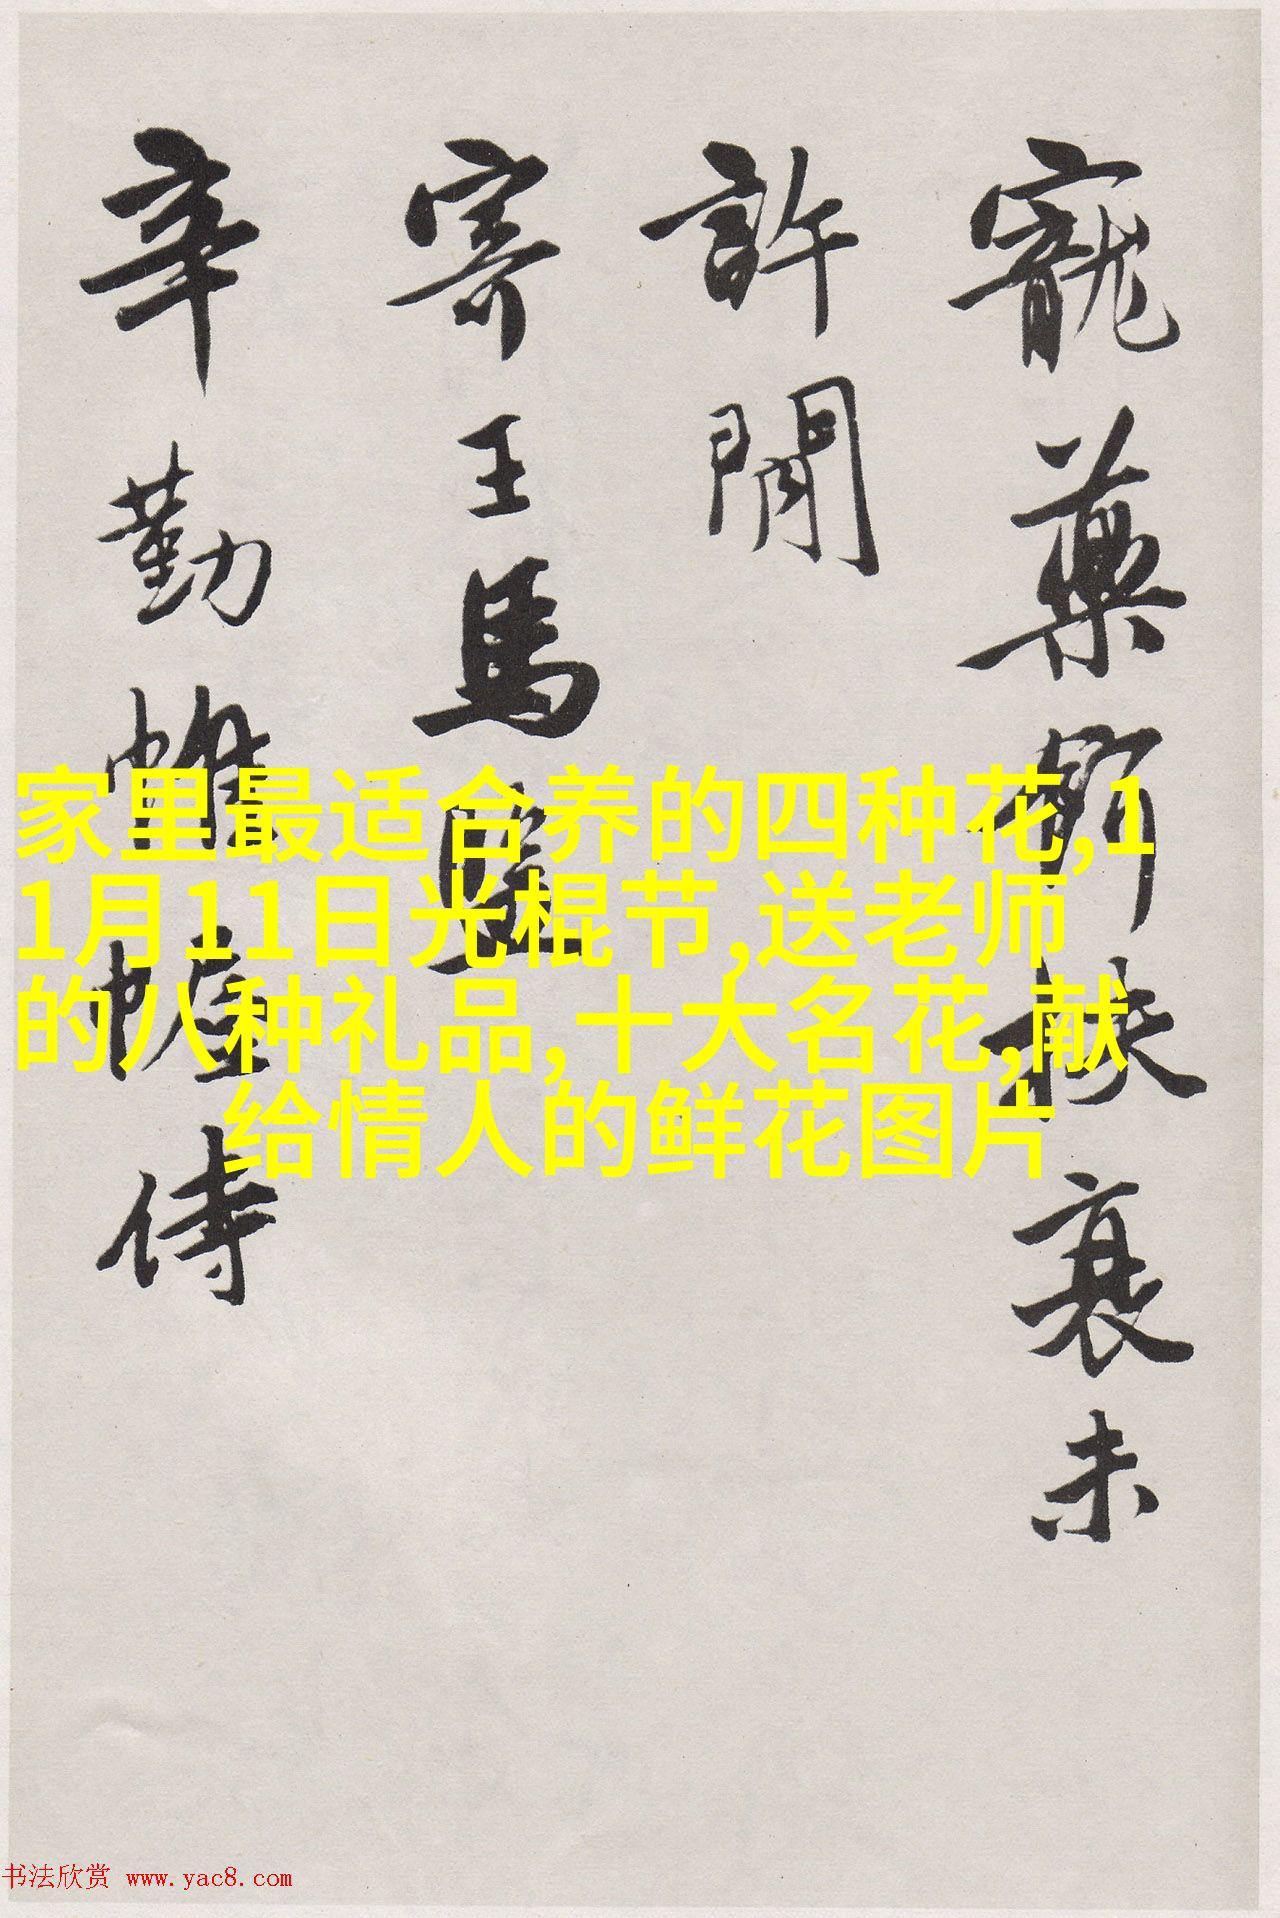 寵藥節扶衰未
許閒
寄王馬
辛勤帷幄侍
家里最适合养的四种花,1
1月11日光棍节,送老师
的八种礼品,十大名花,献
给情人的鲜花图片
书法欣赏 www.yac8.com